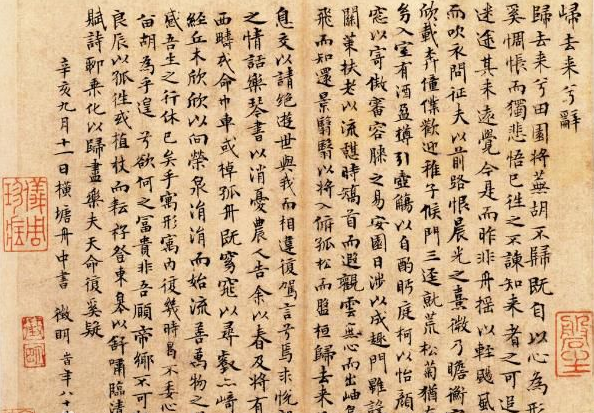 歸去来兮辭
歸去来兮田園將蕪胡不歸既自以心為形
奚惆悵而獨悲悟已往之不諫知来者之可追
迷途其未遠覺今是而昨非舟摇以輕颺風
而吹衣問征夫以前路恨晨光之熹微乃瞻衡
欣載奔僮僕歡迎稚子候門三逕就荒松菊猶
幼入室有酒盈樽引壺觴以自酌眄庭柯以怡顔
窓以寄傲審容膝之易安園日涉以成趣門雖設
關策扶老以流憇時矯首而遐觀雲無心而出岫鳥
飛而知還景翳翳以將入撫孤松而盤桓歸去来
息交以請絶遊世與我而相違復駕言兮焉求悅
之情話樂琴書以消憂農人告余以春及將有
西疇或命巾車或棹孤舟既窈窕以尋壑亦崎
經丘木欣欣以向榮泉涓涓而始流善萬物之
感吾生之行休已矣乎寓形寓内復幾時曷不委心
留胡為乎遑兮欲何之冨貴非吾願帝鄉不可
良辰以孤往或植杖而耘耔登東皋以舒嘯臨清
賦詩聊乗化以歸盡樂夫天命復奚疑
辛亥九月十一日橫塘舟中書 徵明 時年八十
儀周珍藏